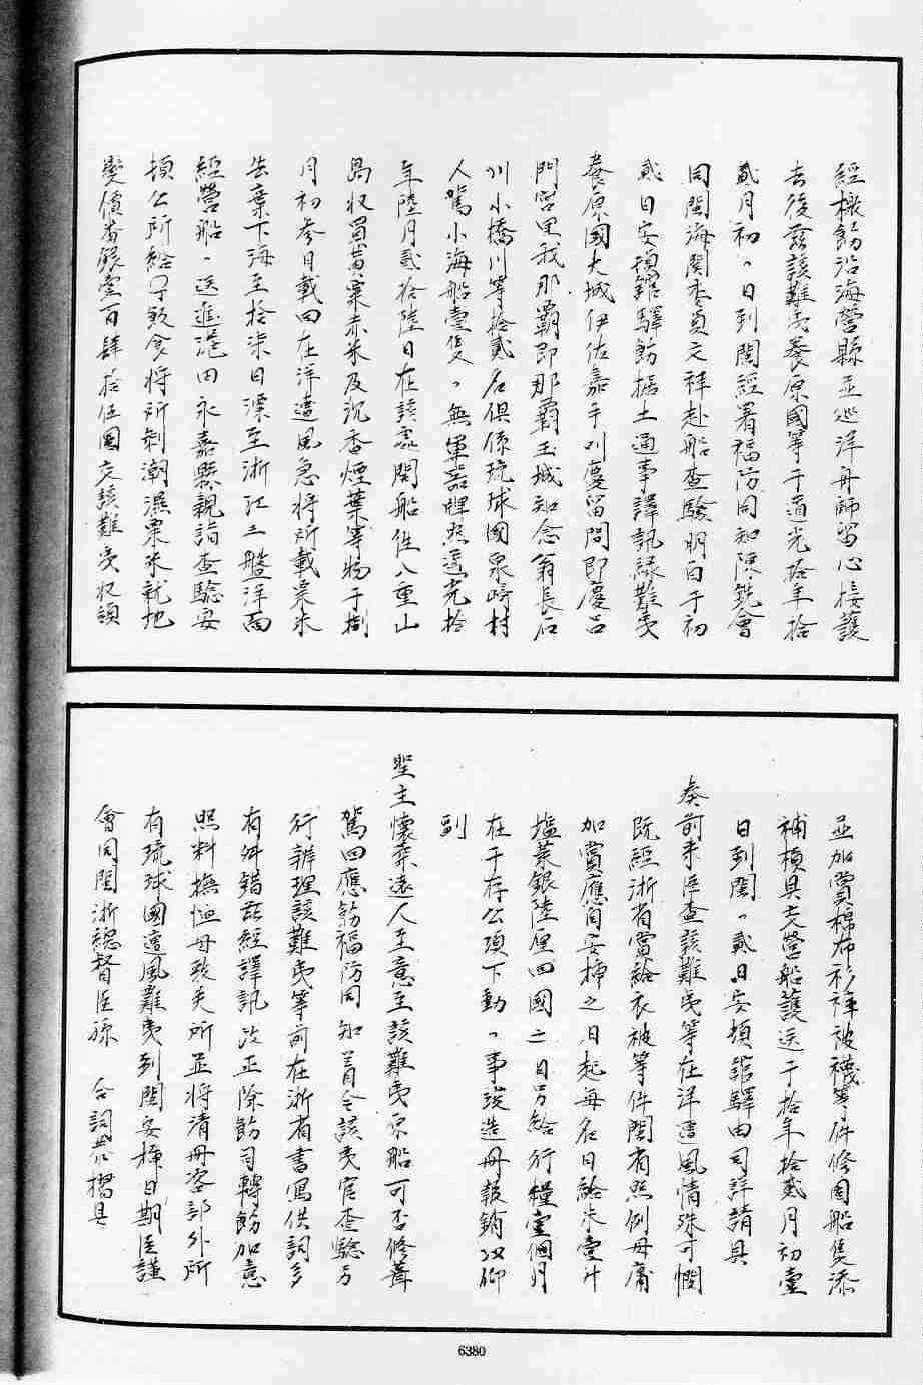 經檄飭沿海營縣並巡洋舟師留心接護
去後茲該難夷養原國等于道光拾年拾
貳月初一日到閩經署福防同知陳銑會
同閩海關委員文祥赴船查驗明白于初
貳日安頓館驛飭據土通事譯訊緣難夷
養原國大城伊佐嘉手刈慶留間即慶呂
門宮里我那霸即那霸玉城知念翁長石
川小橋川等拾貳名俱係琉球國泉崎村
人駕小海船壹隻一無軍器牌照道光拾
年陸月貳拾陸日在該處開船往八重山
島收買黃粟赤米及沉香煙葉等物于捌
月初參日載回在洋遭風急將所載粟米
告棄下海至拾柒日漂至浙江三盤洋面
經營船一送進港回永嘉縣親詣查驗安
頓公所給予飲食將所剩潮濕粟米就地
變價番銀壹百肆拾伍圓交該難夷收領
並加賞棉布衫褲被襪等件修固船隻添
補槓具克營船護送于拾年拾貳月初壹
日到閩一貳日安頓館驛由司詳請具
奏前來臣查該難夷等在洋遭風情殊可憫
既經浙省賞給衣被等件閩省照例毋庸
加賞應自安插之日起每名日給米壹升
塩菜銀陸厘回國之日另給行糧壹個月
在于存公項下動一事竣造冊報銷以仰
副
聖主懷柔遠人至意至該難夷原船可否修葺
駕回應飭福防同知督令該夷官查驗另
行辦理該難夷等前在浙省書寫供詞多
有舛錯茲經譯訊改正除飭司轉飭加意
照料撫恤毋致失所並將清冊咨部外所
有琉球國遭風難夷到閩安插日期臣謹
會同閩浙總督臣孫 合詞恭摺具
6380